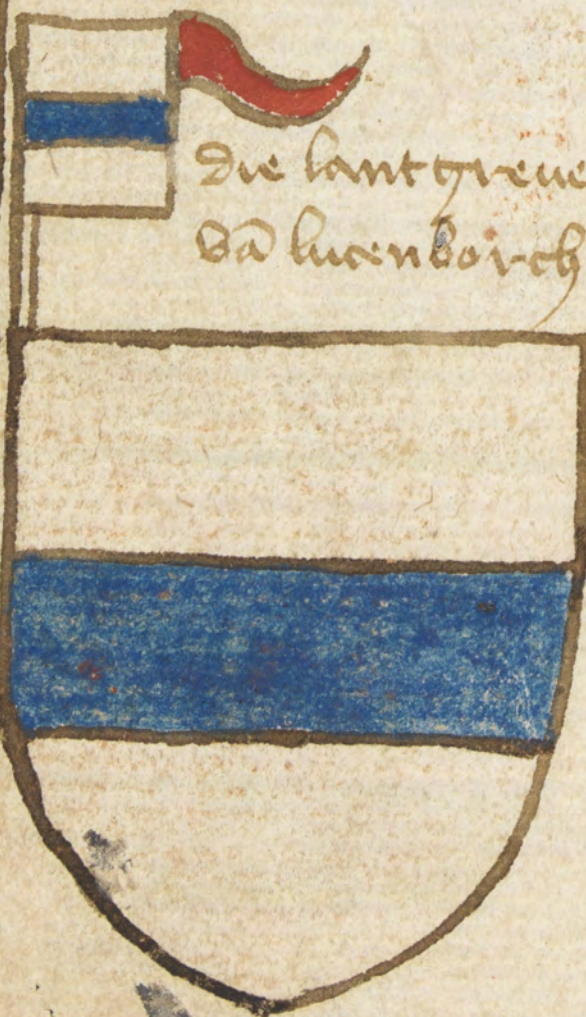 die lantgreue
vā lucenborch